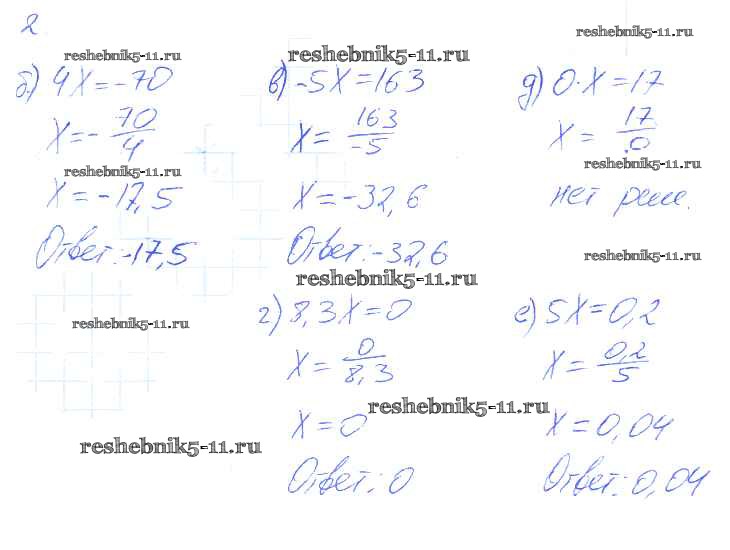 2
reshebnik5-11.ru reshebnik5-11.ru reshebnik5-11.ru
б) 4X=-70
X=-70/4
reshebnik5-11.ru
X=-17,5
Ответ:-17,5
reshebnik5-11.ru
в) -5X=163
X=163/-5
X=-32,6
Ответ:-32,6
reshebnik5-11.ru
г) 8,3X=0
X=0/8,3
X=0
Ответ: 0
reshebnik5-11.ru
д) 0·X=17
X=17/0
reshebnik5-11.ru
нет реш.
reshebnik5-11.ru
е) 5X=0,2
X=0,2/5
reshebnik5-11.ru
X=0,04
Ответ: 0,04